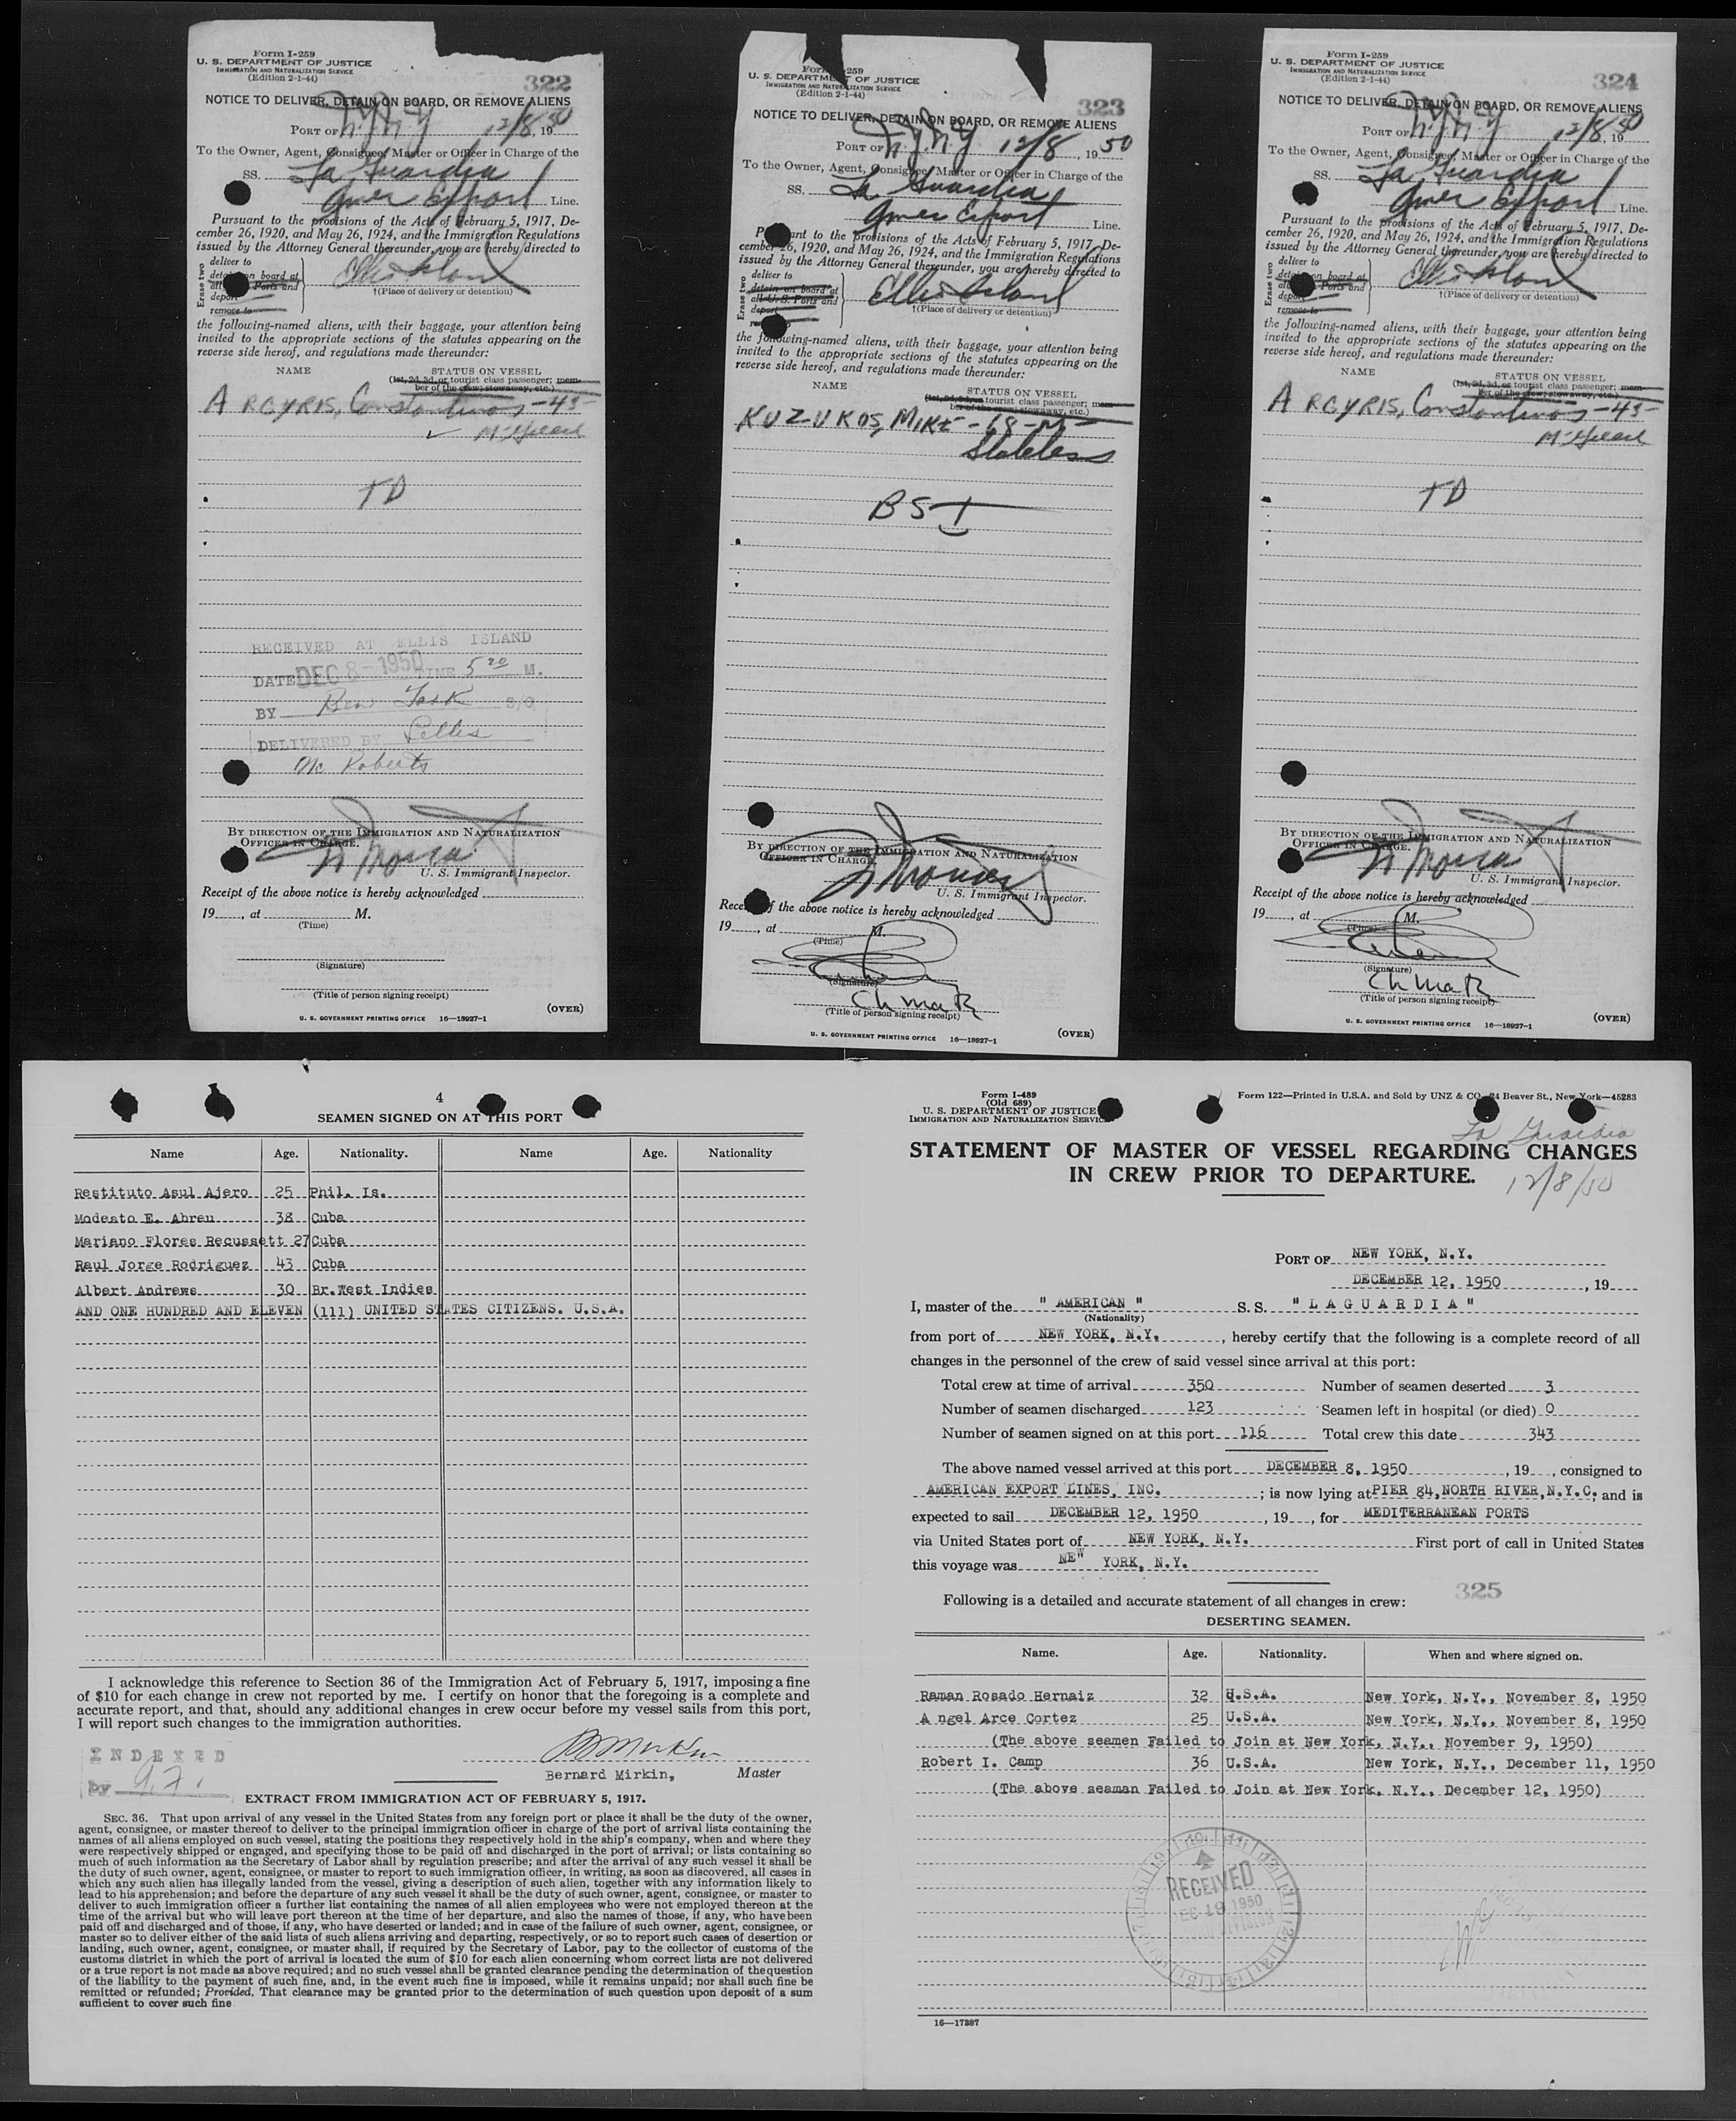 Form I-259
U. S. DEPARTMENT OF JUSTICE
IMMIGRATION AND NATURALIZATION SERVICE
(Edition 2-1-44)
322
NOTICE TO DELIVER, DETAIN ON BOARD, OR REMOVE ALIENS
PORT OF N.Y.N.Y 12/8, 1950
To the Owner, Agent, Consignee, Master or Officer in Charge of the
SS. La Guardia
Amer Export Line.
Pursuant to the provisions of the Acts of February 5, 1917, De-
cember 26, 1920, and May 26, 1924, and the Immigration Regulations
issued by the Attorney General thereunder, you are hereby directed to
Erase two
deliver to
detain on board at
all U. S. Ports and
deport
remove to
Ellis Island
†(Place of delivery or detention)
the following-named aliens, with their baggage, your attention being
invited to the appropriate sections of the statutes appearing on the
reverse side hereof, and regulations made thereunder:
NAME STATUS ON VESSEL
(1st, 2d, 3d, or tourist class passenger; mem-
ber of the crew; stowaway, etc.)
ARGYRIS, Constantinos - 43 -
TD
RECEIVED AT ELLIS ISLAND
DATE DEC 8 - 1950 TIME 5 20 M.
BY Ben Task S/O
DELIVERED BY Lelles
Mc Roberts
BY DIRECTION OF THE IMMIGRATION AND NATURALIZATION
OFFICER IN CHARGE.
U. S. Immigrant Inspector.
Receipt of the above notice is hereby acknowledged
19 , at M.
(Time)
(Signature)
(Title of person signing receipt)
(OVER)
U. S. GOVERNMENT PRINTING OFFICE 16—18927-1
Form I-259
U. S. DEPARTMENT OF JUSTICE
IMMIGRATION AND NATURALIZATION SERVICE
(Edition 2-1-44)
323
NOTICE TO DELIVER, DETAIN ON BOARD, OR REMOVE ALIENS
PORT OF N.Y.N.Y. 12/8, 1950
To the Owner, Agent, Consignee, Master or Officer in Charge of the
SS. La Guardia
Amer Export Line.
Pursuant to the provisions of the Acts of February 5, 1917, De-
cember 26, 1920, and May 26, 1924, and the Immigration Regulations
issued by the Attorney General thereunder, you are hereby directed to
Erase two
deliver to
detain on board at
all U. S. Ports and
deport
remove to
Ellis Island
†(Place of delivery or detention)
the following-named aliens, with their baggage, your attention being
invited to the appropriate sections of the statutes appearing on the
reverse side hereof, and regulations made thereunder:
NAME STATUS ON VESSEL
(1st, 2d, 3d, or tourist class passenger; mem-
ber of the crew; stowaway, etc.)
KUZUKOS, MIKE - 68 - M -
Stateless
BSI
BY DIRECTION OF THE IMMIGRATION AND NATURALIZATION
OFFICER IN CHARGE.
U. S. Immigrant Inspector.
Receipt of the above notice is hereby acknowledged
19 , at M.
(Time)
(Signature)
Ch Mate
(Title of person signing receipt)
(OVER)
U. S. GOVERNMENT PRINTING OFFICE 16—18927-1
Form I-259
U. S. DEPARTMENT OF JUSTICE
IMMIGRATION AND NATURALIZATION SERVICE
(Edition 2-1-44)
324
NOTICE TO DELIVER, DETAIN ON BOARD, OR REMOVE ALIENS
PORT OF N.Y.N.Y 12/8, 1950
To the Owner, Agent, Consignee, Master or Officer in Charge of the
SS. La Guardia
Amer Export Line.
Pursuant to the provisions of the Acts of February 5, 1917, De-
cember 26, 1920, and May 26, 1924, and the Immigration Regulations
issued by the Attorney General thereunder, you are hereby directed to
Erase two
deliver to
detain on board at
all U. S. Ports and
deport
remove to
Ellis Island
†(Place of delivery or detention)
the following-named aliens, with their baggage, your attention being
invited to the appropriate sections of the statutes appearing on the
reverse side hereof, and regulations made thereunder:
NAME STATUS ON VESSEL
(1st, 2d, 3d, or tourist class passenger; mem-
ber of the crew; stowaway, etc.)
ARGYRIS, Constantinos - 43 -
TD
BY DIRECTION OF THE IMMIGRATION AND NATURALIZATION
OFFICER IN CHARGE.
U. S. Immigrant Inspector.
Receipt of the above notice is hereby acknowledged
19 , at M.
(Time)
(Signature)
Ch Mate
(Title of person signing receipt)
(OVER)
U. S. GOVERNMENT PRINTING OFFICE 16—18927-1
4
SEAMEN SIGNED ON AT THIS PORT
Name Age. Nationality. Name Age. Nationality
Restituto Asul Ajero 25 Phil. Is.
Modesto E. Abreu 38 Cuba
Mariano Flores Recussett 27 Cuba
Raul Jorge Rodriguez 43 Cuba
Albert Andrews 30 Br.West Indies
AND ONE HUNDRED AND ELEVEN (111) UNITED STATES CITIZENS. U.S.A.
I acknowledge this reference to Section 36 of the Immigration Act of February 5, 1917, imposing a fine
of $10 for each change in crew not reported by me. I certify on honor that the foregoing is a complete and
accurate report, and that, should any additional changes in crew occur before my vessel sails from this port,
I will report such changes to the immigration authorities.
INDEXED
by
B Mirkin
Bernard Mirkin, Master
EXTRACT FROM IMMIGRATION ACT OF FEBRUARY 5, 1917.
SEC. 36. That upon arrival of any vessel in the United States from any foreign port or place it shall be the duty of the owner,
agent, consignee, or master thereof to deliver to the principal immigration officer in charge of the port of arrival lists containing the
names of all aliens employed on such vessel, stating the positions they respectively hold in the ship's company, when and where they
were respectively shipped or engaged, and specifying those to be paid off and discharged in the port of arrival; or lists containing so
much of such information as the Secretary of Labor shall by regulation prescribe; and after the arrival of any such vessel it shall be
the duty of such owner, agent, consignee, or master to report to such immigration officer, in writing, as soon as discovered, all cases in
which any such alien has illegally landed from the vessel, giving a description of such alien, together with any information likely to
lead to his apprehension; and before the departure of any such vessel it shall be the duty of such owner, agent, consignee, or master to
deliver to such immigration officer a further list containing the names of all alien employees who were not employed thereon at the
time of the arrival but who will leave port thereon at the time of her departure, and also the names of those, if any, who have been
paid off and discharged and of those, if any, who have deserted or landed; and in case of the failure of such owner, agent, consignee, or
master so to deliver either of the said lists of such aliens arriving and departing, respectively, or so to report such cases of desertion or
landing, such owner, agent, consignee, or master shall, if required by the Secretary of Labor, pay to the collector of customs of the
customs district in which the port of arrival is located the sum of $10 for each alien concerning whom correct lists are not delivered
or a true report is not made as above required; and no such vessel shall be granted clearance pending the determination of the question
of the liability to the payment of such fine, and, in the event such fine is imposed, while it remains unpaid; nor shall such fine be
remitted or refunded; Provided, That clearance may be granted prior to the determination of such question upon deposit of a sum
sufficient to cover such fine
Form I-489
(Old 689)
U. S. DEPARTMENT OF JUSTICE
IMMIGRATION AND NATURALIZATION SERVICE
Form 122—Printed in U.S.A. and Sold by UNZ & CO., 24 Beaver St., New York—45283
La Guardia
STATEMENT OF MASTER OF VESSEL REGARDING CHANGES
IN CREW PRIOR TO DEPARTURE.
12/8/50
PORT OF NEW YORK, N.Y.
DECEMBER 12, 1950 , 19
I, master of the " AMERICAN " S. S. " L A G U A R D I A "
(Nationality)
from port of NEW YORK, N.Y. , hereby certify that the following is a complete record of all
changes in the personnel of the crew of said vessel since arrival at this port:
Total crew at time of arrival 350 Number of seamen deserted 3
Number of seamen discharged 123 Seamen left in hospital (or died) 0
Number of seamen signed on at this port 116 Total crew this date 343
The above named vessel arrived at this port DECEMBER 8, 1950 , 19 , consigned to
AMERICAN EXPORT LINES, INC. ; is now lying at PIER 84, NORTH RIVER, N.Y.C. and is
expected to sail DECEMBER 12, 1950 , 19 , for MEDITERRANEAN PORTS
via United States port of NEW YORK, N.Y. First port of call in United States
this voyage was NEW YORK, N.Y.
325
Following is a detailed and accurate statement of all changes in crew:
DESERTING SEAMEN.
Name. Age. Nationality. When and where signed on.
Raman Rosado Hernaiz 32 U.S.A. New York, N.Y., November 8, 1950
A ngel Arce Cortez 25 U.S.A. New York, N.Y., November 8, 1950
(The above seamen Failed to Join at New York, N.Y., November 9, 1950)
Robert I. Camp 36 U.S.A. New York, N.Y., December 11, 1950
(The above seaman Failed to Join at New York, N.Y., December 12, 1950)
RECEIVED
DEC 19 1950
DIVISION
16—17387